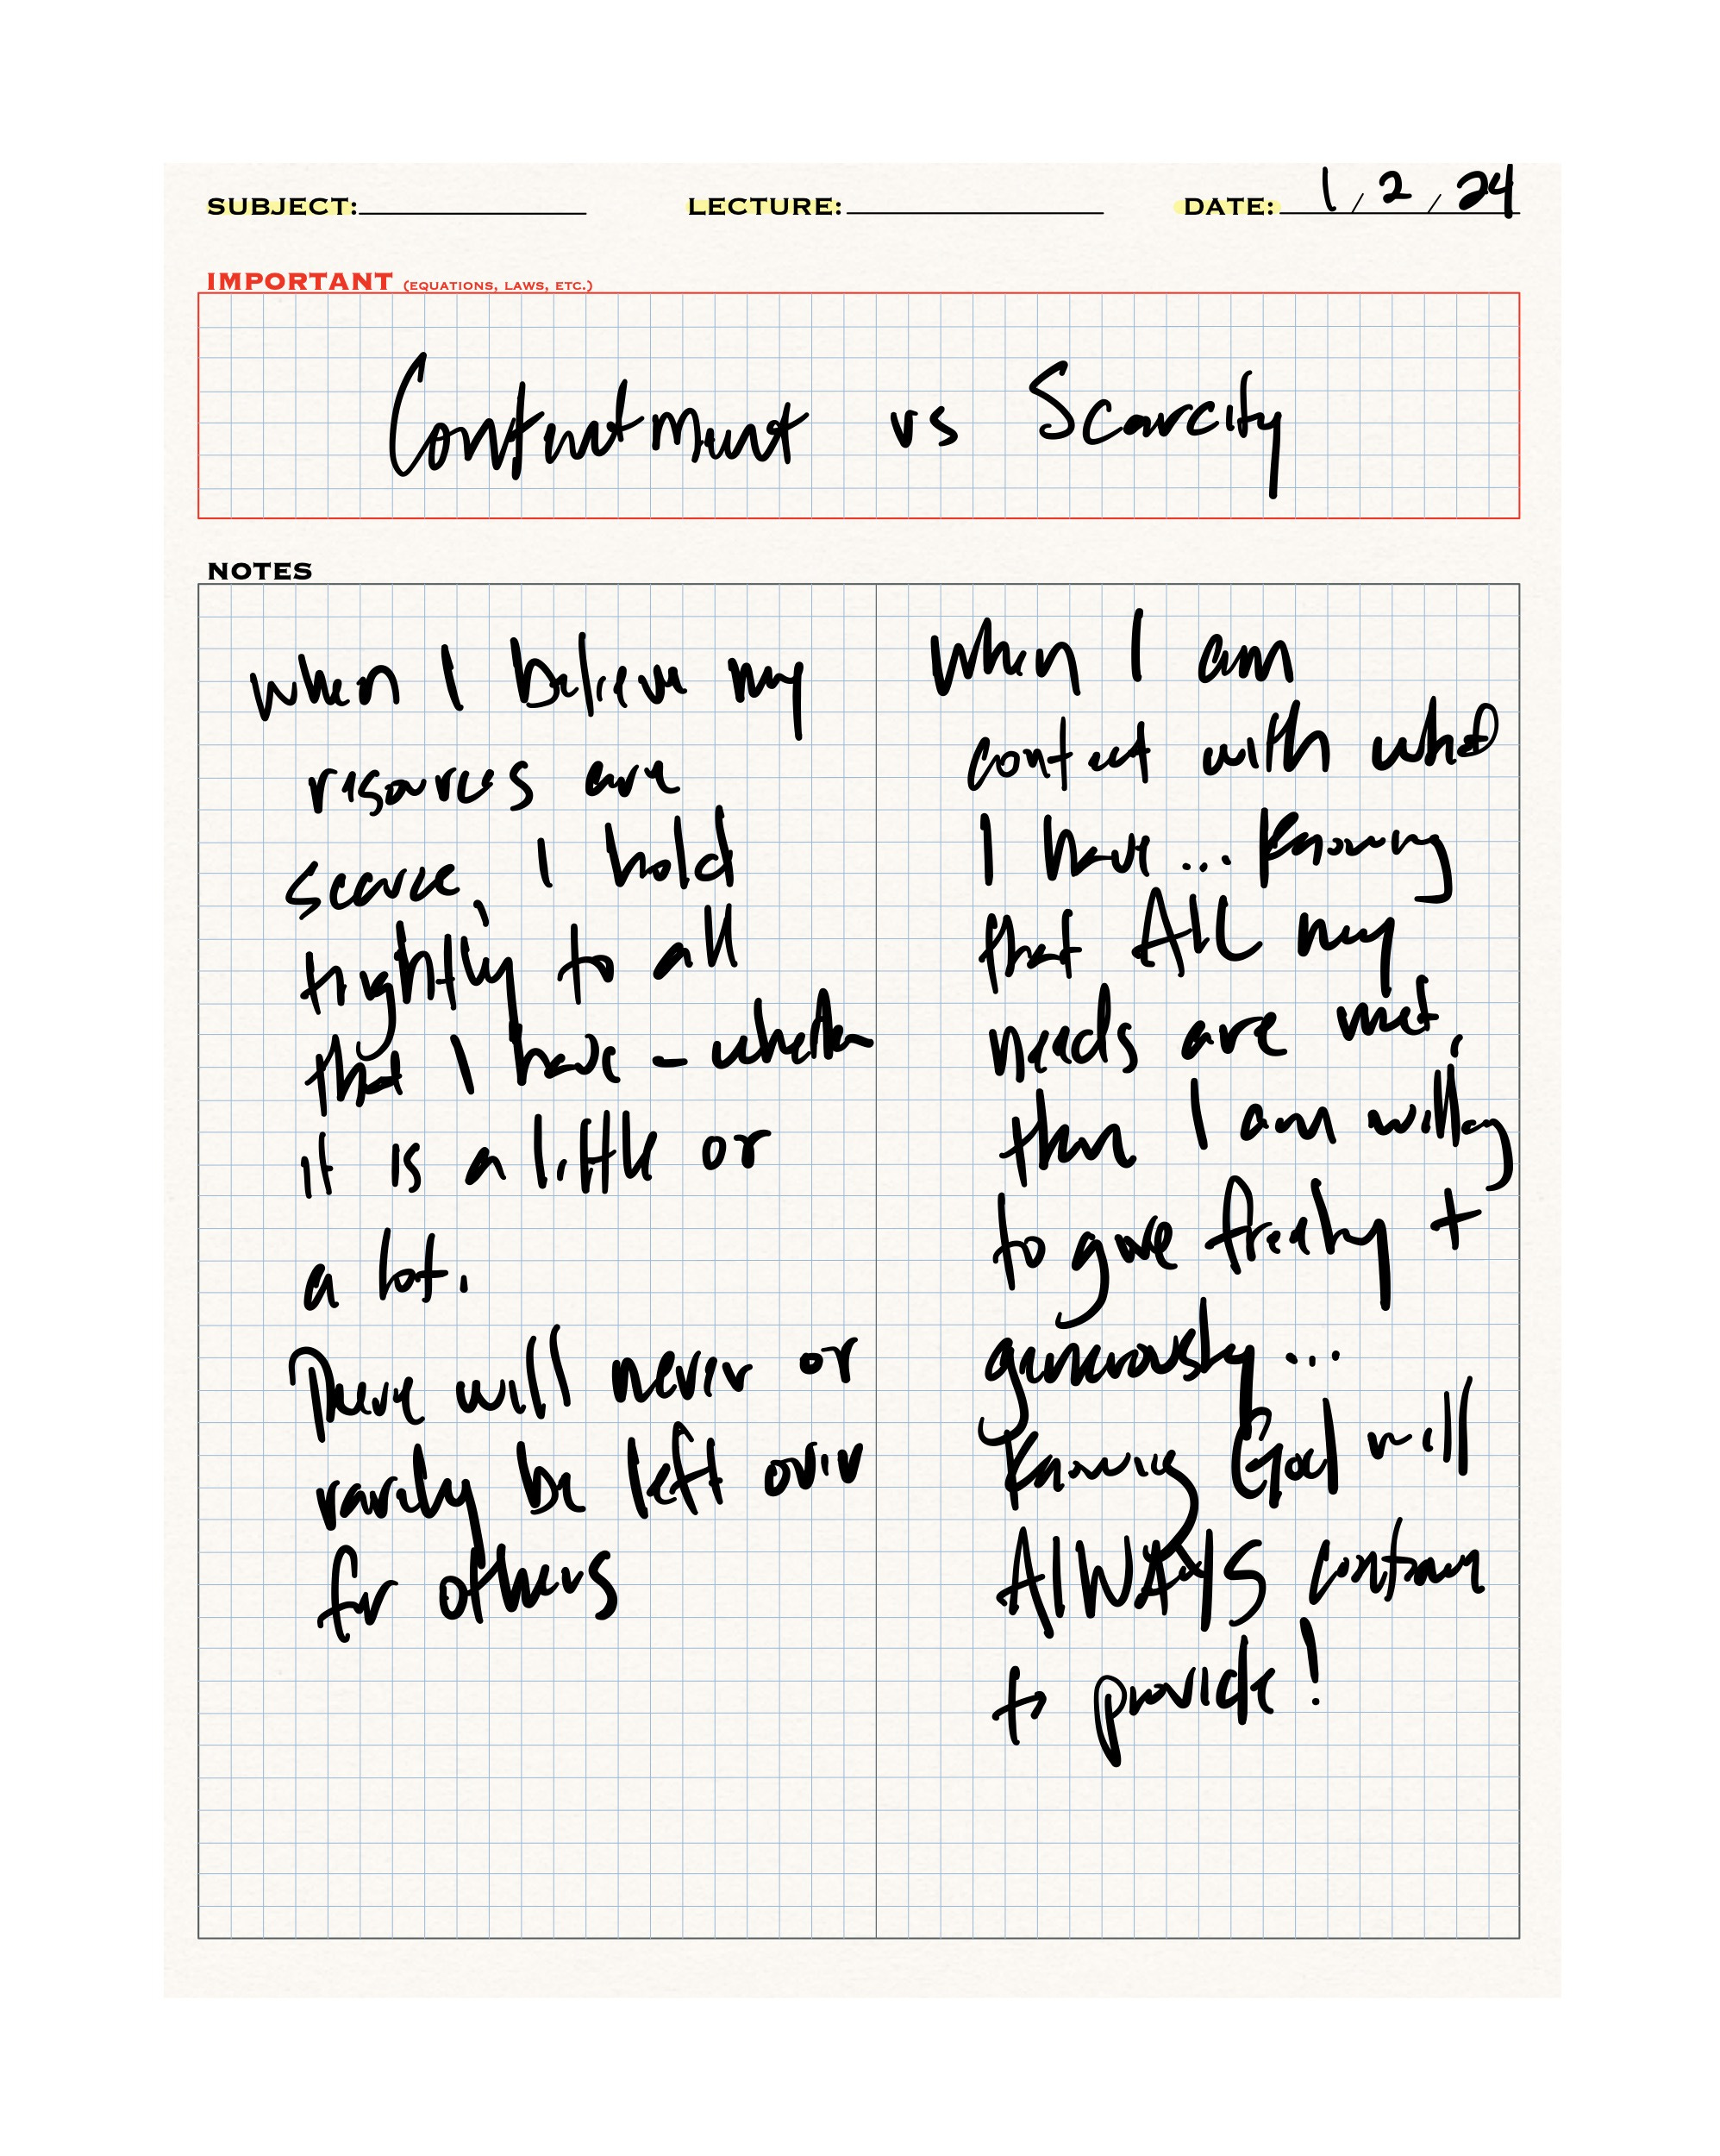 SUBJECT: LECTURE: DATE: 1/2/24
IMPORTANT (EQUATIONS, LAWS, ETC.)
Contentment vs Scarcity
NOTES
when I believe my
resources are
scarce, I hold
tightly to all
that I have - whether
it is a little or
a lot.
There will never or
rarely be left over
for others
When I am
content with what
I have... knowing
that ALL my
needs are met,
then I am willing
to give freely +
generously...
knowing God will
ALWAYS continue
to provide!